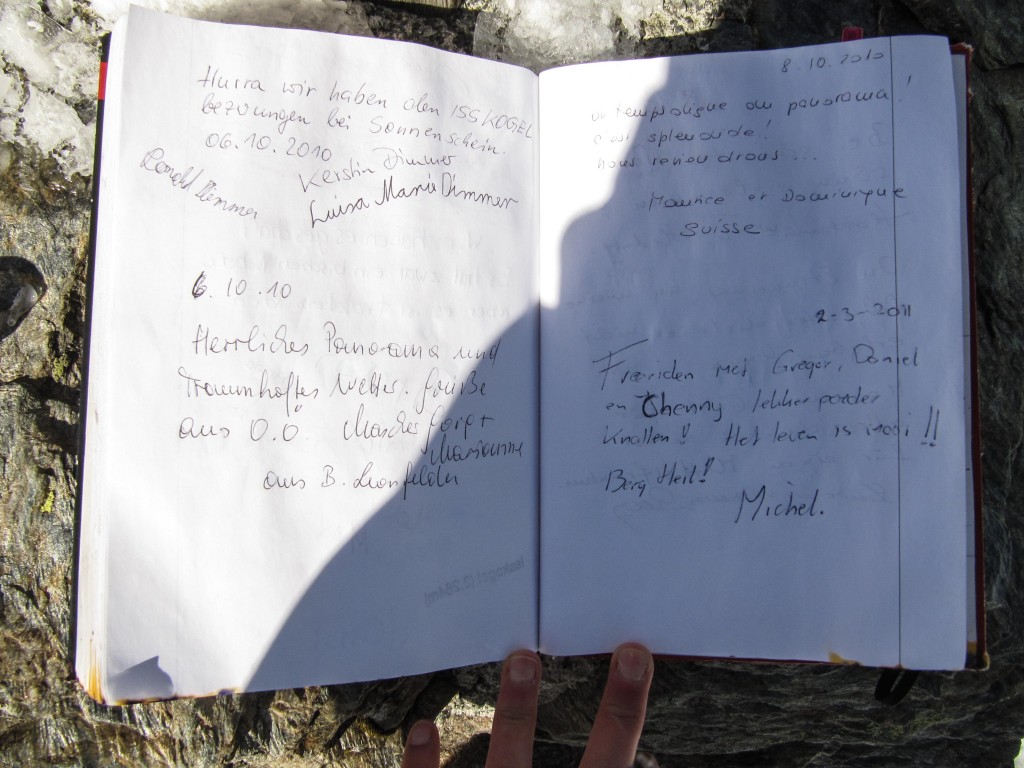 Hurra wir haben den ISSKOGEL
bezwungen bei Sonnenschein.
06.10.2010
Kerstin Dimmer
Ronald Dimmer
Luisa Marie Dimmer
6.10.10
Herrliches Panorama und
Traumhaftes Wetter. Grüße
aus O.Ö.
Marianne
aus B. Leonfelden
Isskogel (2.264m)
8.10.2010
un temps digne du panorama!
c'est splendide!
nous reviendrons ...
Maurice et Dominique
Suisse
2-3-2011
Freeriden met Gregor, Daniel
en Chenny lekker poeder
knallen! Het leven is mooi!!
Berg Heil!
Michel.